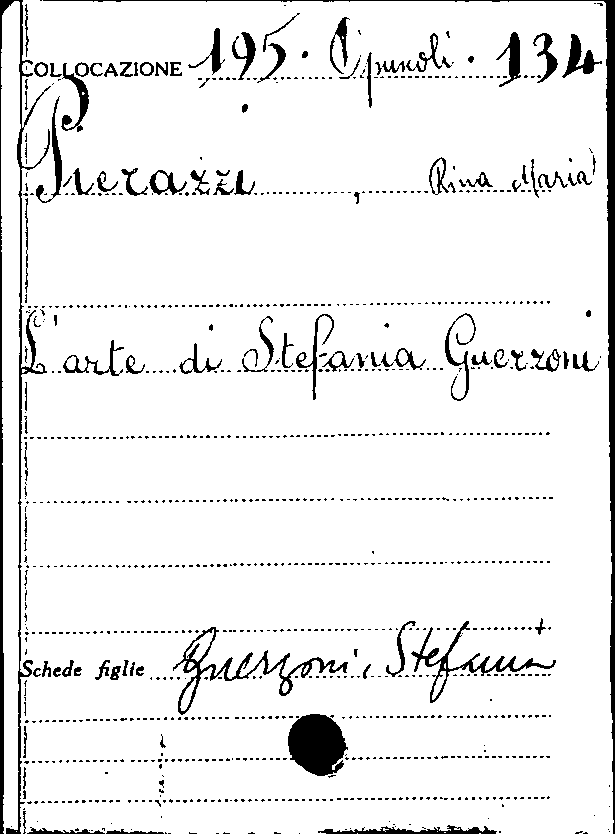 COLLOCAZIONE 195. Opuscoli. 134
Pierazzi, Rina Maria
L'arte di Stefania Guerzoni
Schede figlie Guerzoni, Stefania +